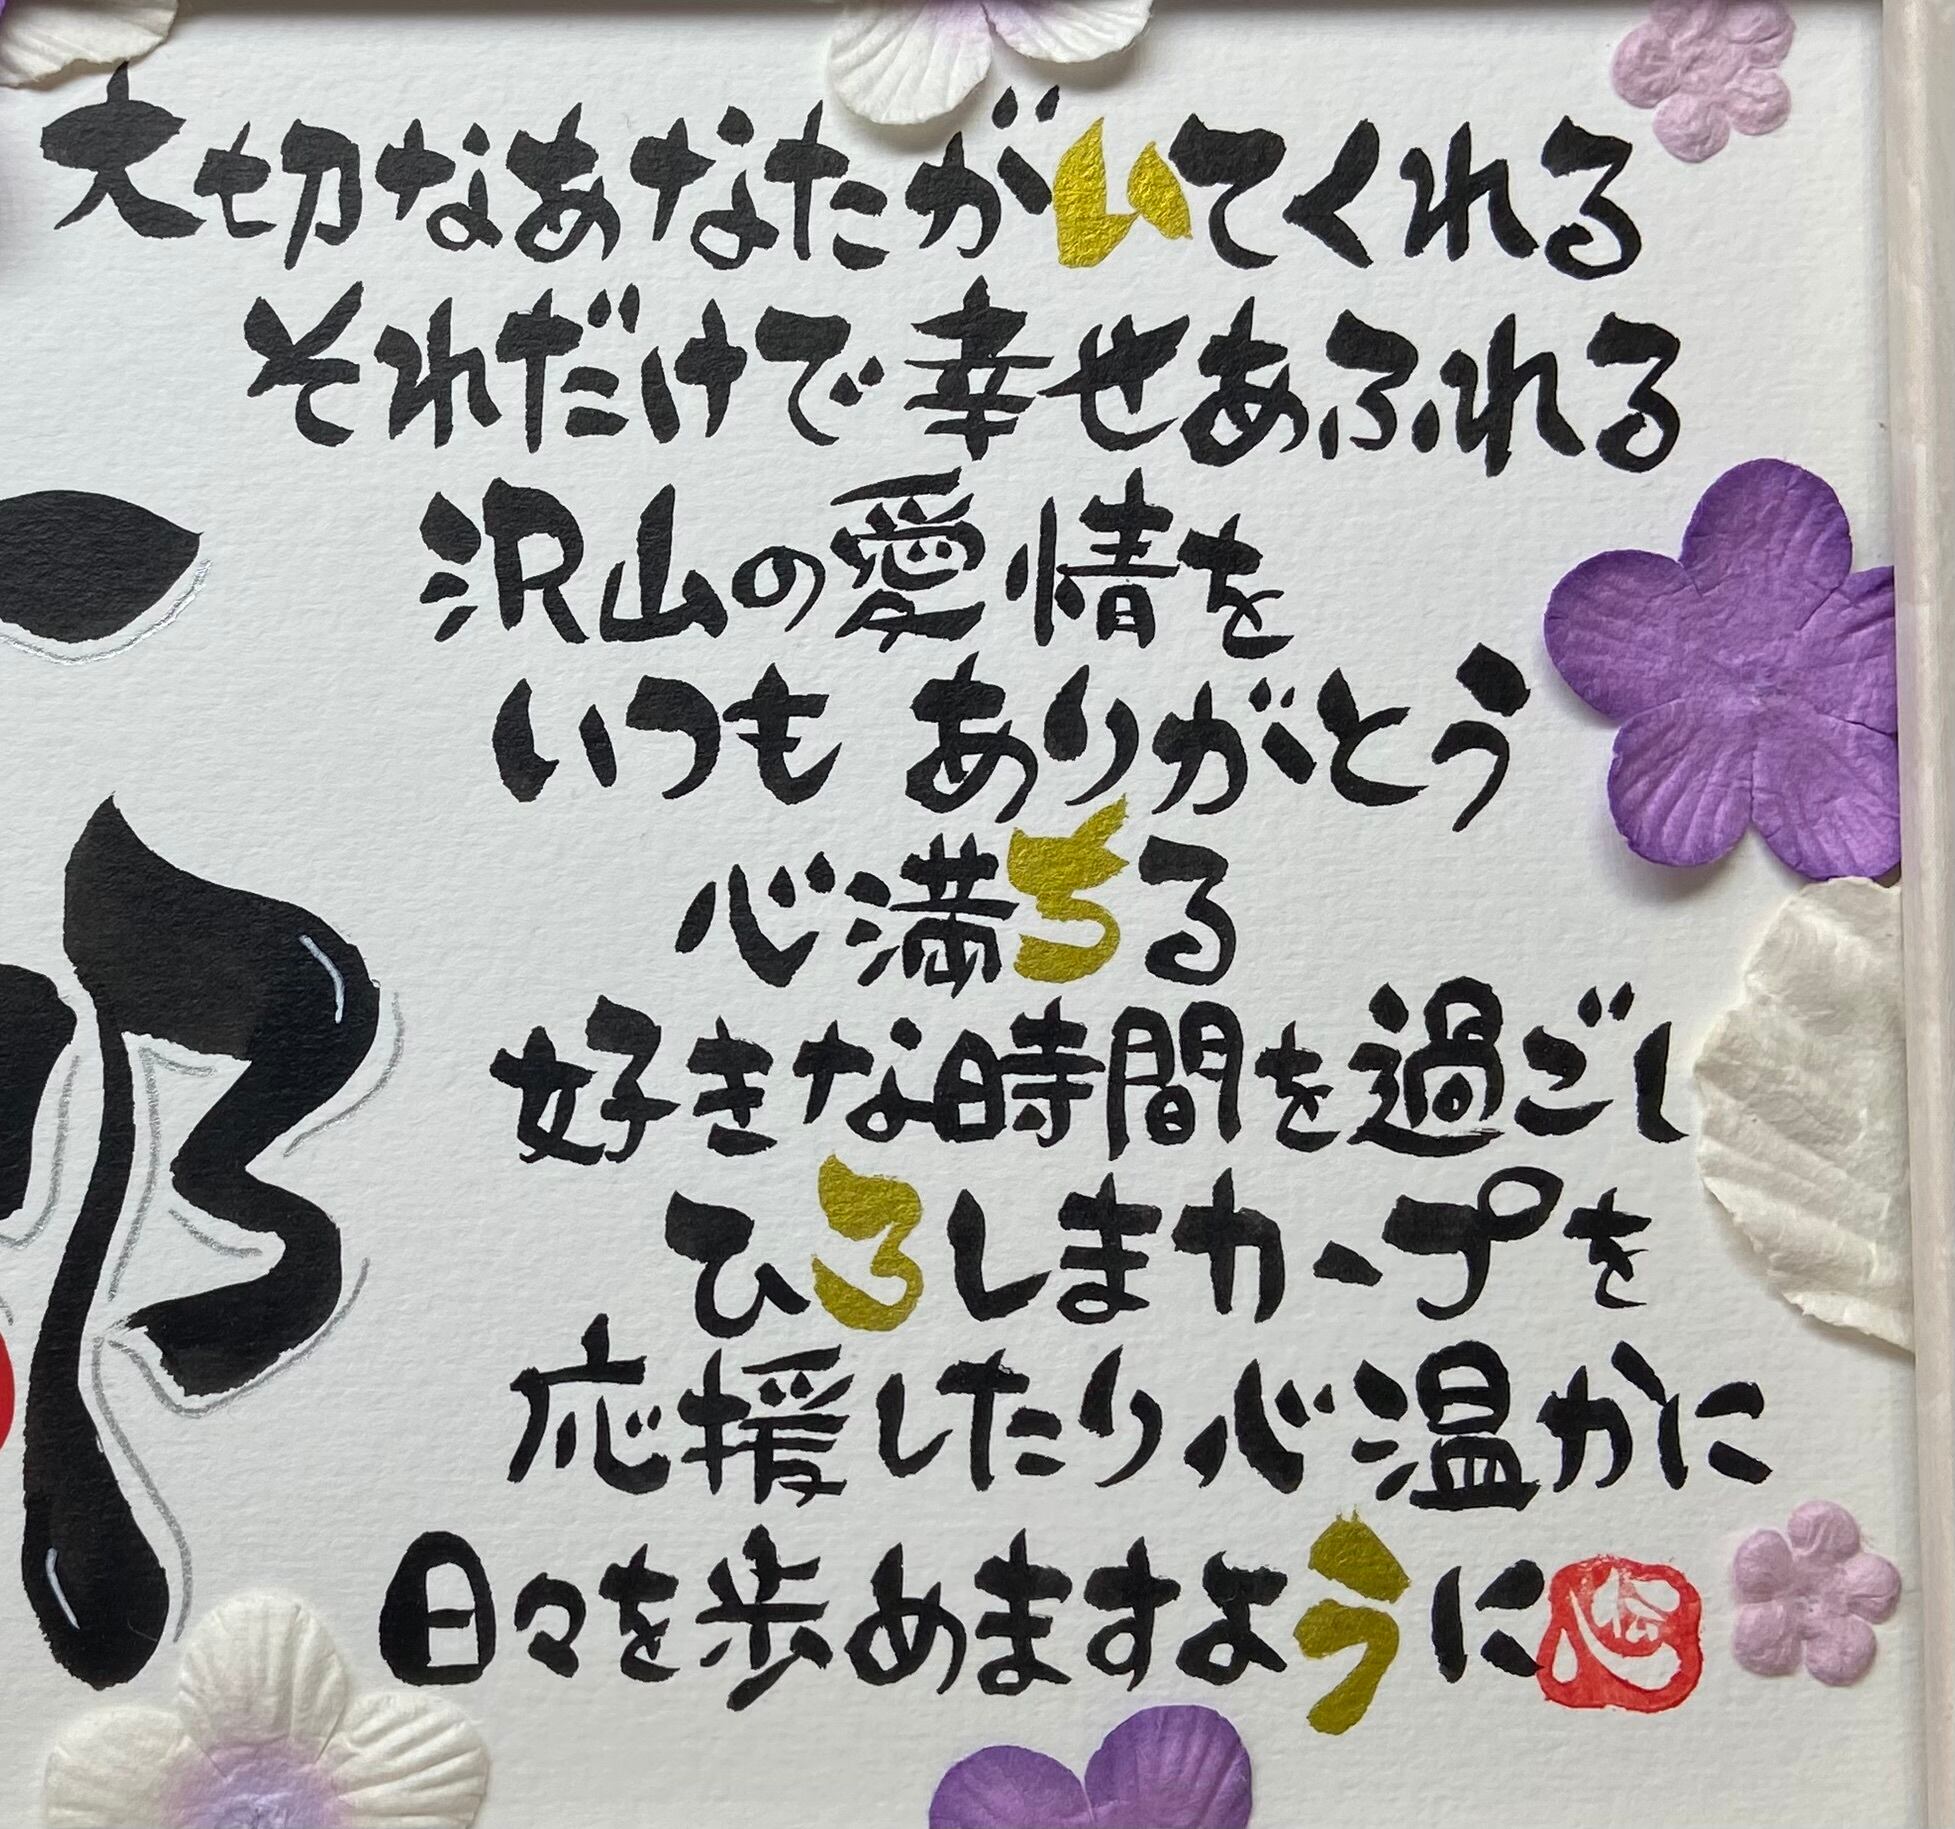 大切なあなたがいてくれる
それだけで幸せあふれる
沢山の愛情を
いつも ありがとう
心満ちる
好きな時間を過ごし
ひろしまカープを
応援したり心温かに
日々を歩めますように